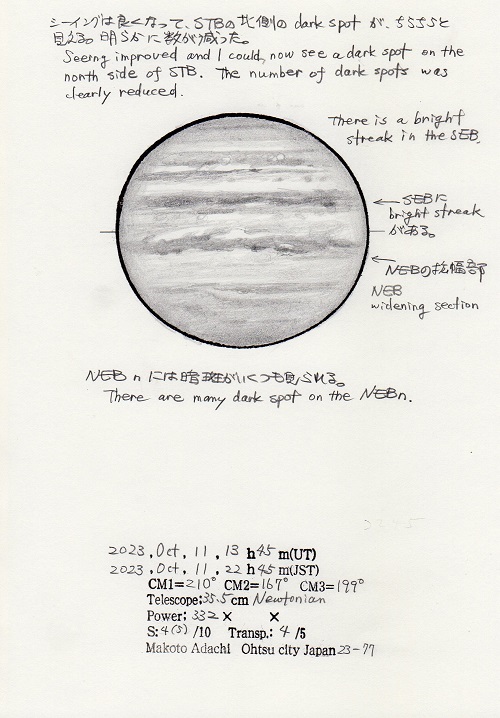 シーイングは良くなって、STBの北側の dark spot が、ちらちらと
見える。明らかに数が減った。
Seeing improved and I could, now see a dark spot on the
north side of STB. The number of dark spots was
clearly reduced.
There is a bright
streak in the SEB.
SEBに
bright streak
がある。
NEBの拡幅部
NEB
widening section
NEB n には暗斑がいくつも見られる。
There are many dark spot on the NEBn.
2023, Oct, 11, 13 h 45 m(UT)
2023, Oct, 11, 22 h 45 m(JST)
CM1=210° CM2=167° CM3=199°
Telescope:35.5cm Newtonian
Power: 332× ×
S:4(5)/10 Transp.: 4/5
Makoto Adachi Ohtsu city Japan 23-77